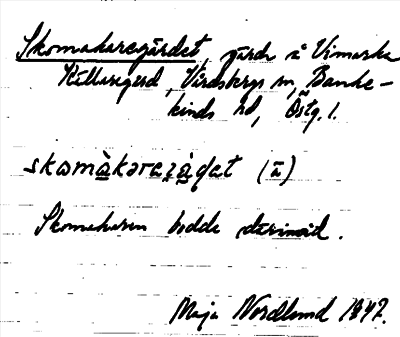 Skomakaregärdet, gärde å Vimarka
Källaregård, Vårdsbergs sn, Banke-
kinds hd, Östg. l.
skomàkarezàdat (ä)
Skomakaren bodde därinvid.
Maja Nordlund 1947.